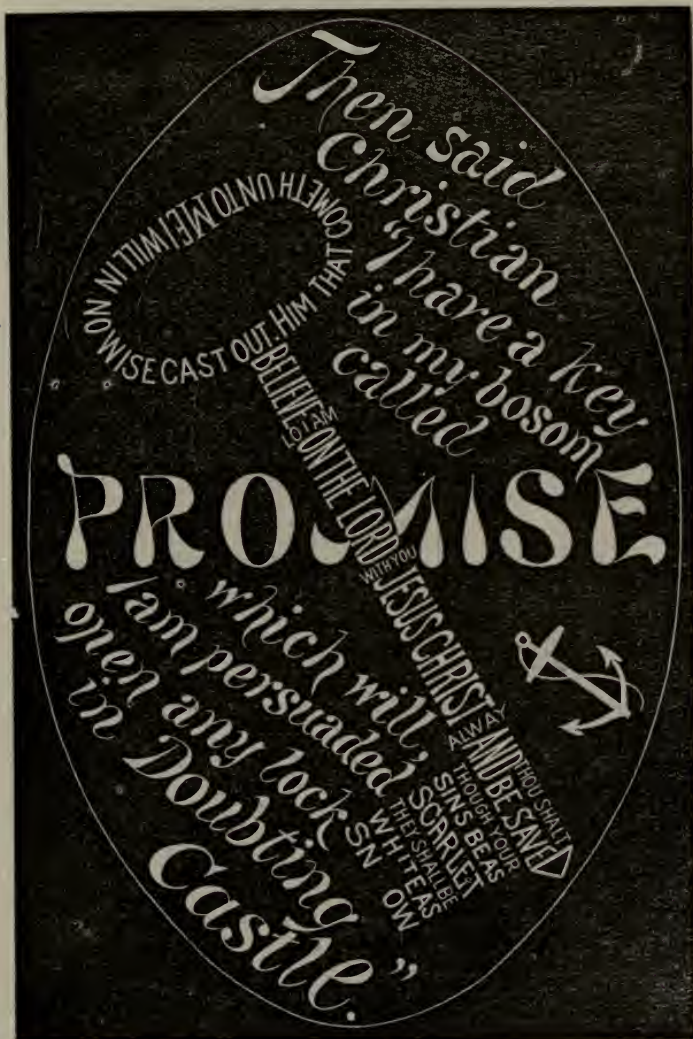 Then said
Christian
"I have a key
in my bosom
called
PROMISE
which will,
I am persuaded
open any lock
in Doubting
Castle."
HIM THAT COMETH UNTO ME I WILL IN NO WISE CAST OUT.
BELIEVE ON THE LORD JESUS CHRIST AND THOU SHALT BE SAVED
LO I AM
WITH YOU
ALWAY
THOUGH YOUR
SINS BE AS
SCARLET
THEY SHALL BE
WHITE AS
SN OW